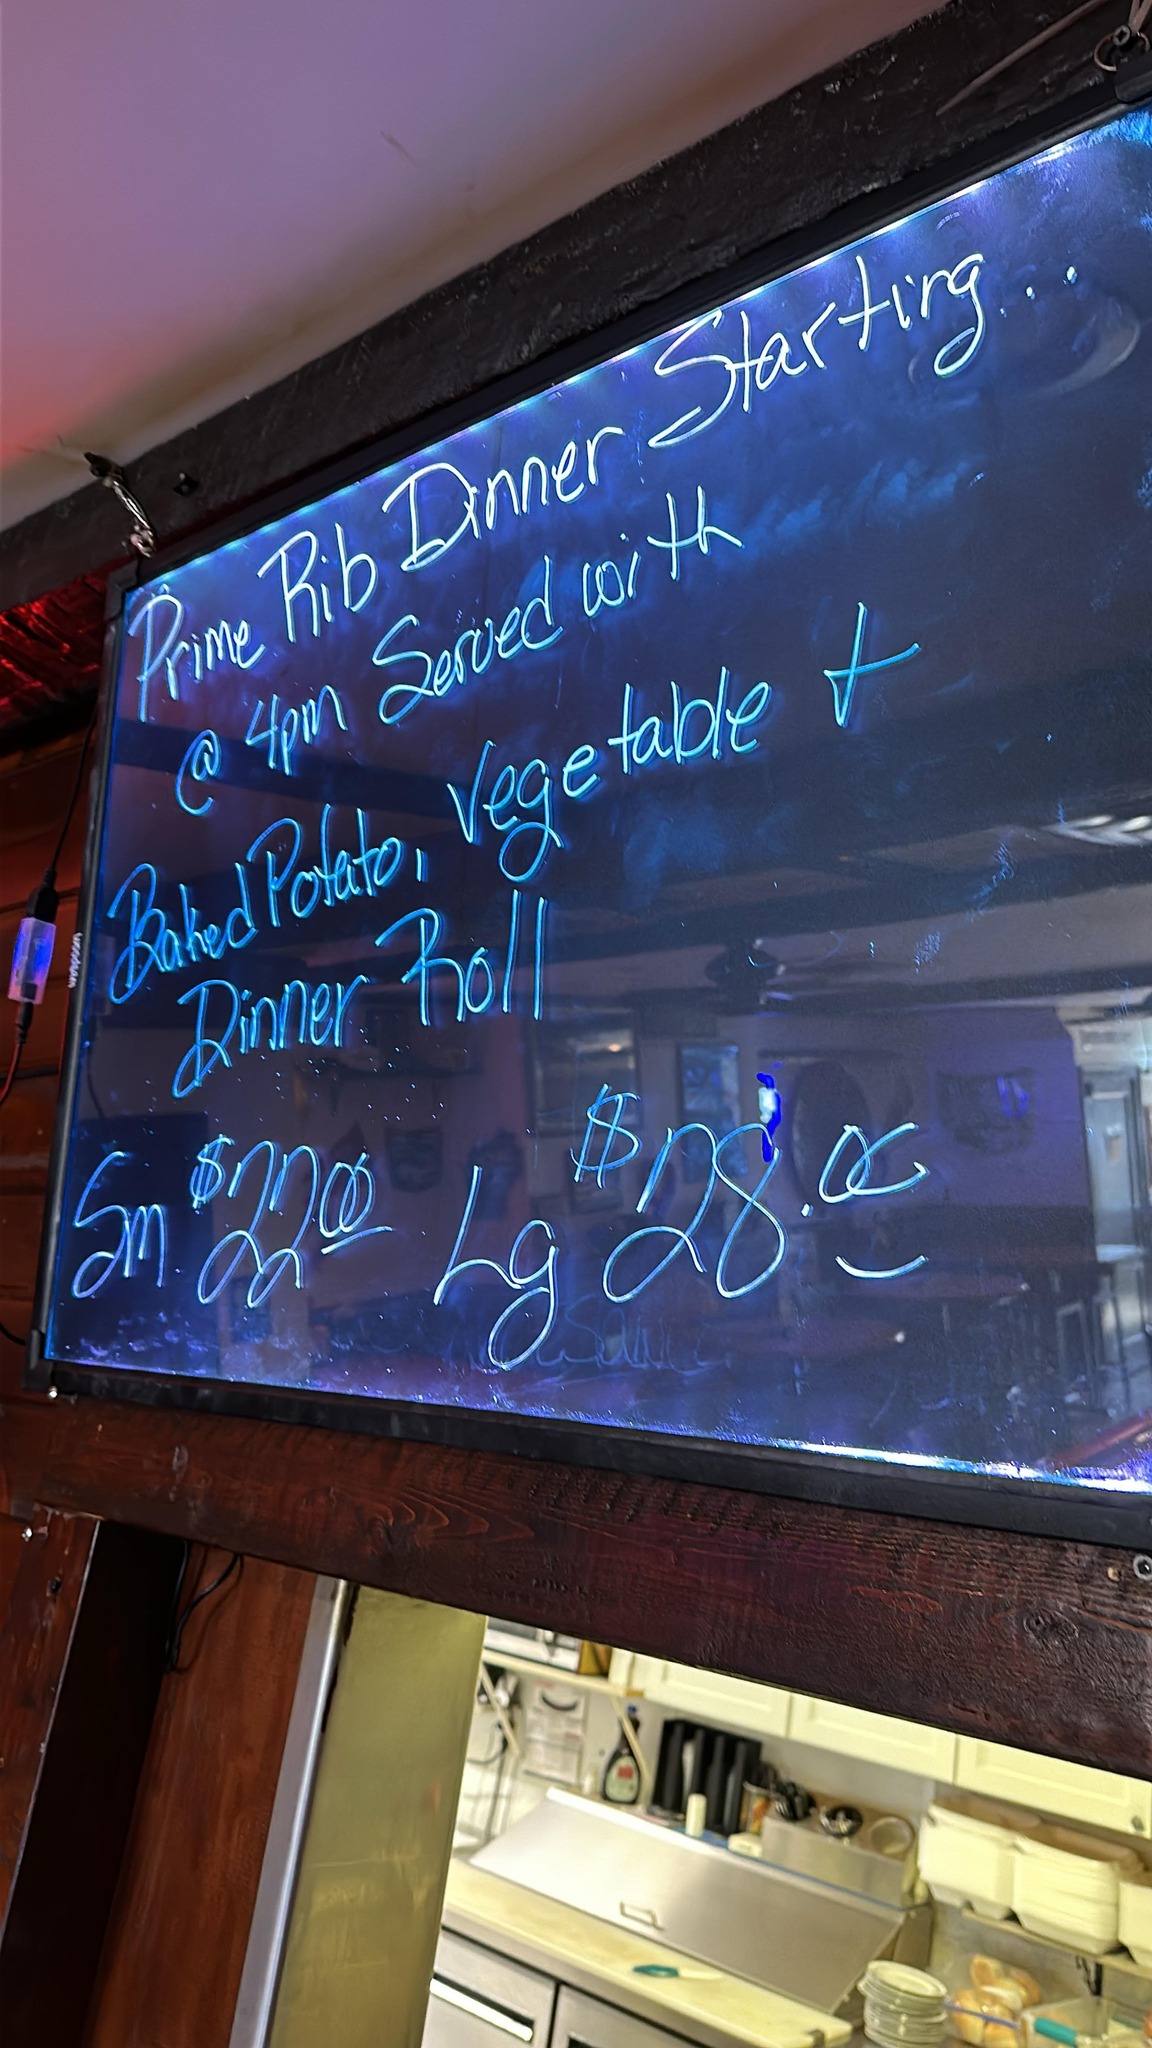 Prime Rib Dinner Starting...
@ 4pm Served with
Baked Potato, Vegetable +
Dinner Roll
Sm $22.00 Lg $28.00